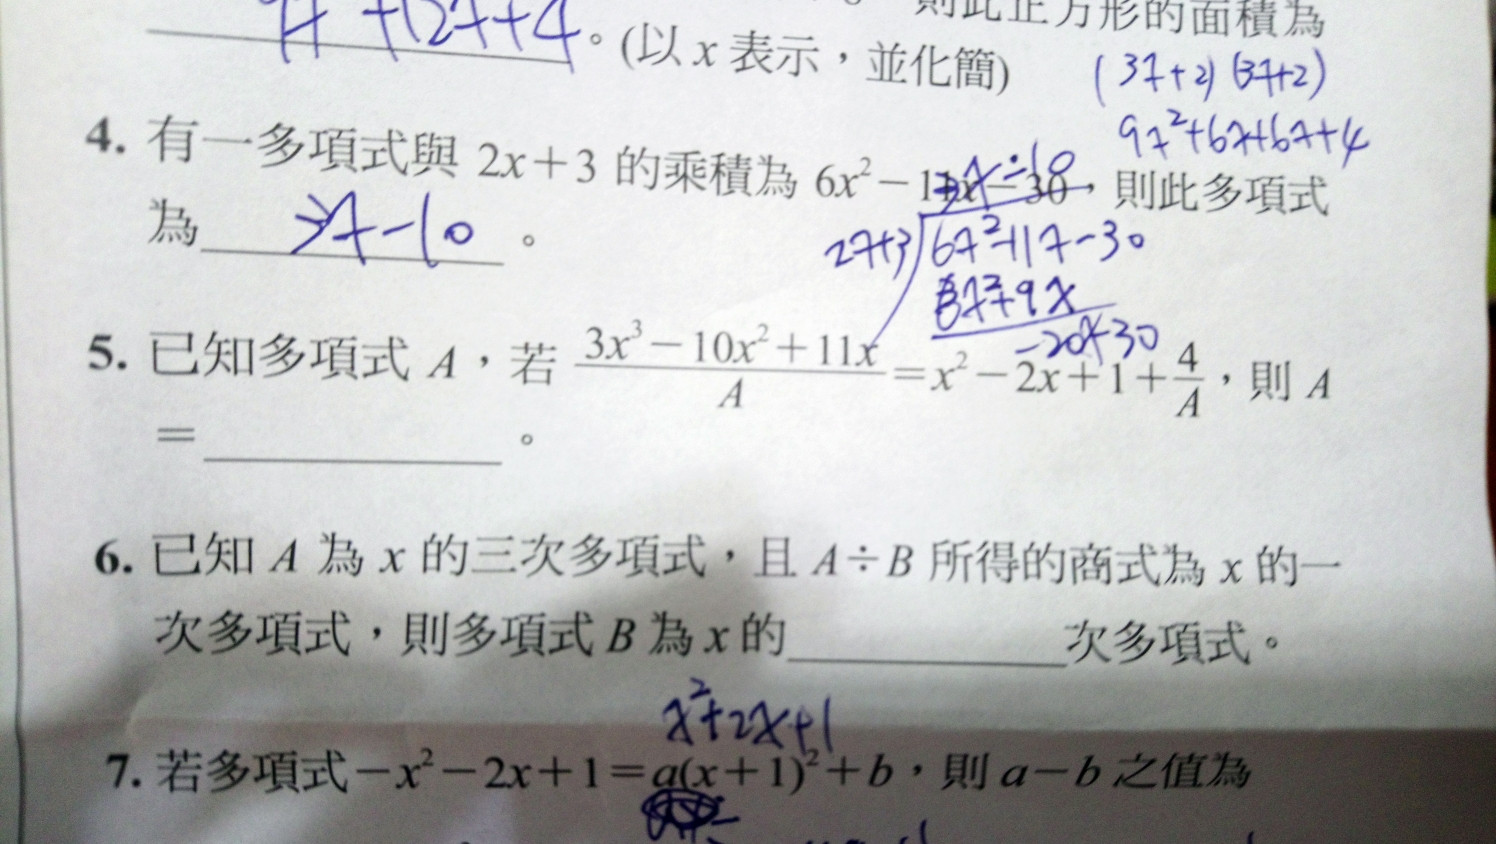 則此正方形的面積為
9x²+12x+4。(以 x 表示，並化簡)
(3x+2)(3x+2)
9x²+6x+6x+4
4. 有一多項式與 2x+3 的乘積為 6x²-11x-30，則此多項式
為 3x-10 。
3x-10
2x+3 6x²-11x-30
6x²+9x
-20x-30
5. 已知多項式 A，若 (3x³-10x²+11x)/A = x²-2x+1+4/A，則 A
= 。
6. 已知 A 為 x 的三次多項式，且 A÷B 所得的商式為 x 的一
次多項式，則多項式 B 為 x 的 次多項式。
x²+2x+1
7. 若多項式-x²-2x+1=a(x+1)²+b，則 a-b 之值為